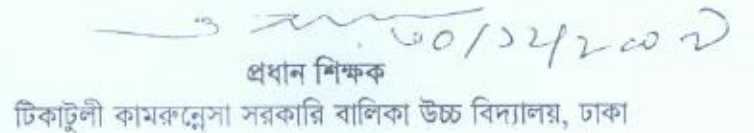 ৩০/১২/২০০৯
প্রধান শিক্ষক
টিকাটুলী কামরুন্নেসা সরকারি বালিকা উচ্চ বিদ্যালয়, ঢাকা